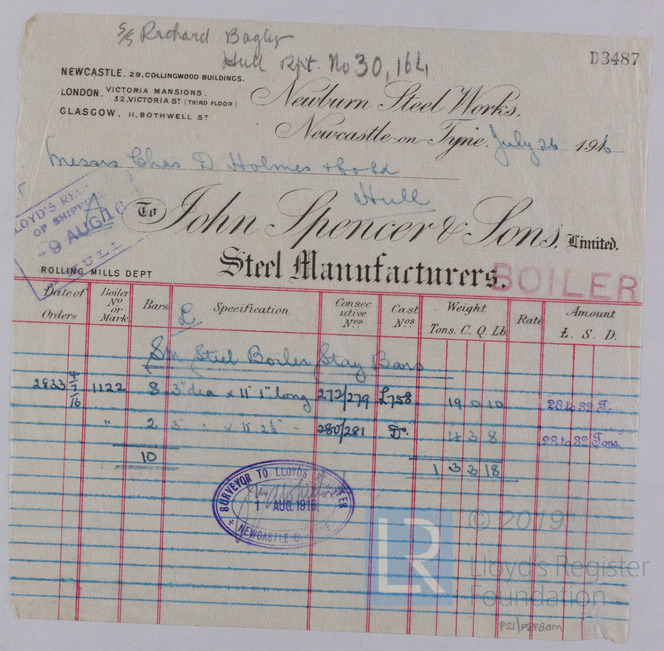 S/S Richard Bagley
Hull Rpt. No 30,164
D3487
NEWCASTLE. 29, COLLINGWOOD BUILDINGS.
LONDON. VICTORIA MANSIONS.
52, VICTORIA ST (THIRD FLOOR)
GLASGOW. 11, BOTHWELL ST
Newburn Steel Works,
Newcastle-on-Tyne. July 26 1916
Messrs Chas D Holmes & Co Ld
Hull
LLOYD'S REG
OF SHIPP
-9 AUG 16
HULL
To John Spencer & Sons, Limited.
Steel Manufacturers.
ROLLING MILLS DEPT
BOILER
Date of Orders Boiler No or Mark. Bars Specification Consecutive Nos Cast Nos Weight Tons. C. Q. Lb. Rate Amount £. S. D.
L
SM Steel Boiler Stay Bars
2833 4/7/16 1122 8 3" dia x 11' 1" long 272/279 L758 19 0 10 28 to 32 T.
" 2 3 " " x 11' 2½" " 280/281 Do. 4 3 8 28 to 32 Tons
10 1 3 3 18
SURVEYOR TO LLOYDS REGISTER
1 AUG. 1916
NEWCASTLE-O
LR
© 2019
Lloyd's Register
Foundation